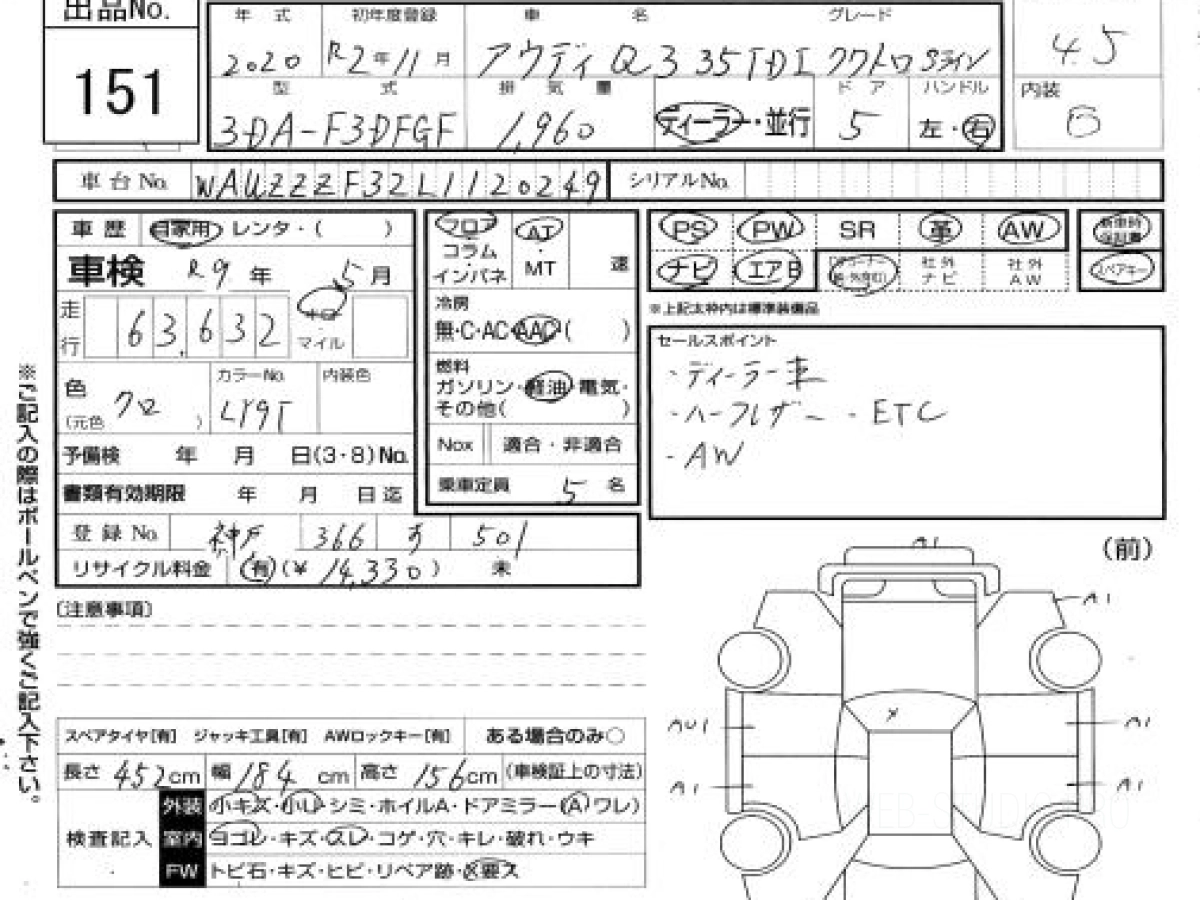 出品No.
151
年式 初年度登録 車名 グレード
2020 R2年11月 アウディ Q3 35TDI クワトロ Sライン
4.5
型式 排気量 ドア ハンドル
3DA-F3DFGF 1,960 ディーラー・並行 5 左・右
内装
B
車台No. WAUZZZF32L1120249 シリアルNo.
車歴 自家用 レンタ・( )
車検 R9年 5月
走行 63,632 キロ マイル
色 (元色 ) クロ カラーNo. LY9T 内装色
予備検 年 月 日(3・8)No.
書類有効期限 年 月 日迄
登録No. 神戸 366 す 501
リサイクル料金 有(¥14,330) 未
フロア・コラム・インパネ
AT・MT 速
冷房
無・C・AC・AAC( )
燃料
ガソリン・軽油・電気・
その他( )
Nox 適合・非適合
乗車定員 5 名
PS PW SR 革 AW 新車時保証書
ナビ エアB 社外ナビ 社外AW スペアキー
※上記太枠内は標準装備品
セールスポイント
・ディーラー車
・ハーフレザー ・ETC
・AW
※ご記入の際はボールペンで強くご記入下さい。
(注意事項)
(前)
A1
A1
AU1 A1
A1 A1
スペアタイヤ[有] ジャッキ工具[有] AWロックキー[有] ある場合のみ○
長さ 452cm 幅 184cm 高さ 156cm (車検証上の寸法)
検査記入
外装 小キズ・小凹・シミ・ホイルA・ドアミラー(A)ワレ)
室内 ヨゴレ・キズ・スレ・コゲ・穴・キレ・破れ・ウキ
FW トビ石・キズ・ヒビ・リペア跡・X要ス